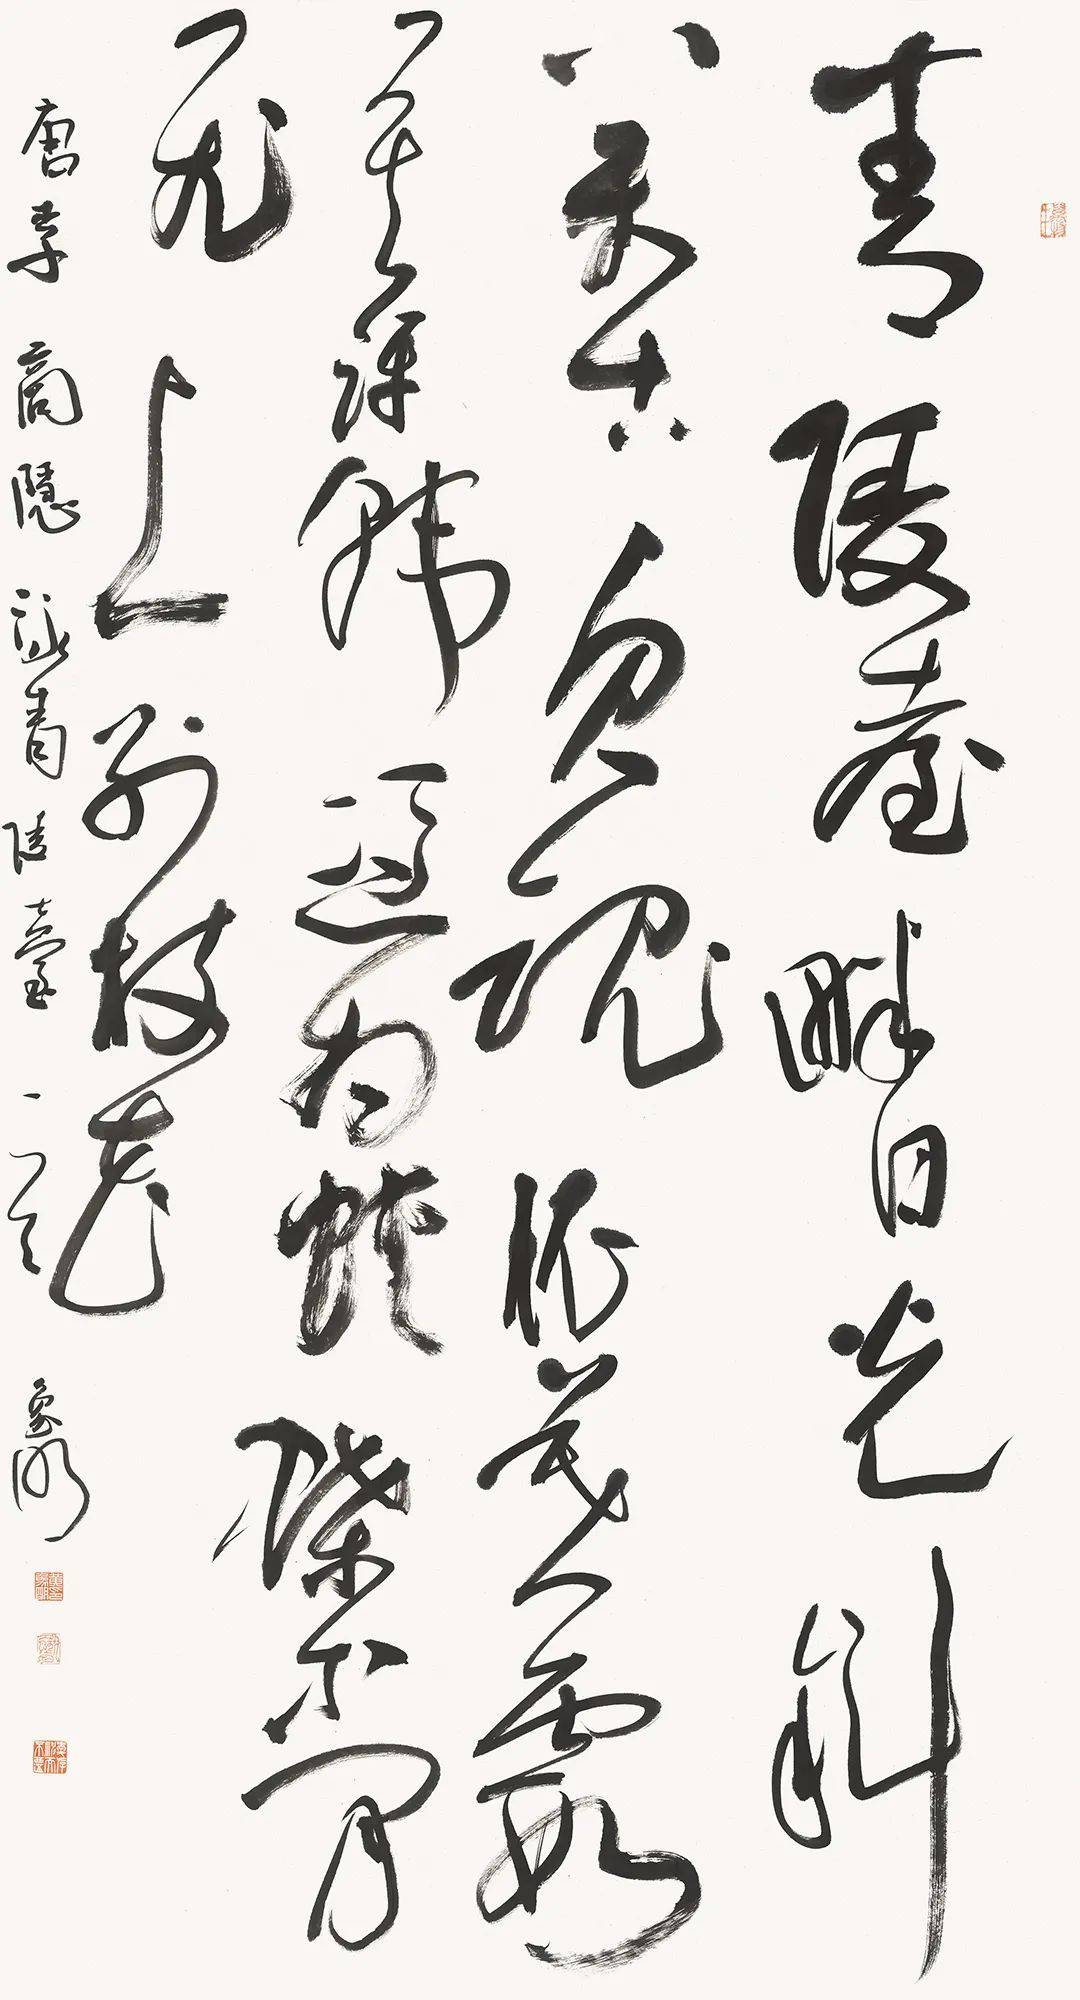 青陵臺畔日光斜
萬古貞魂倚暮霞
莫訝韓憑為蛺蝶等閒
飛上別枝花
唐李商隱詠青陵臺